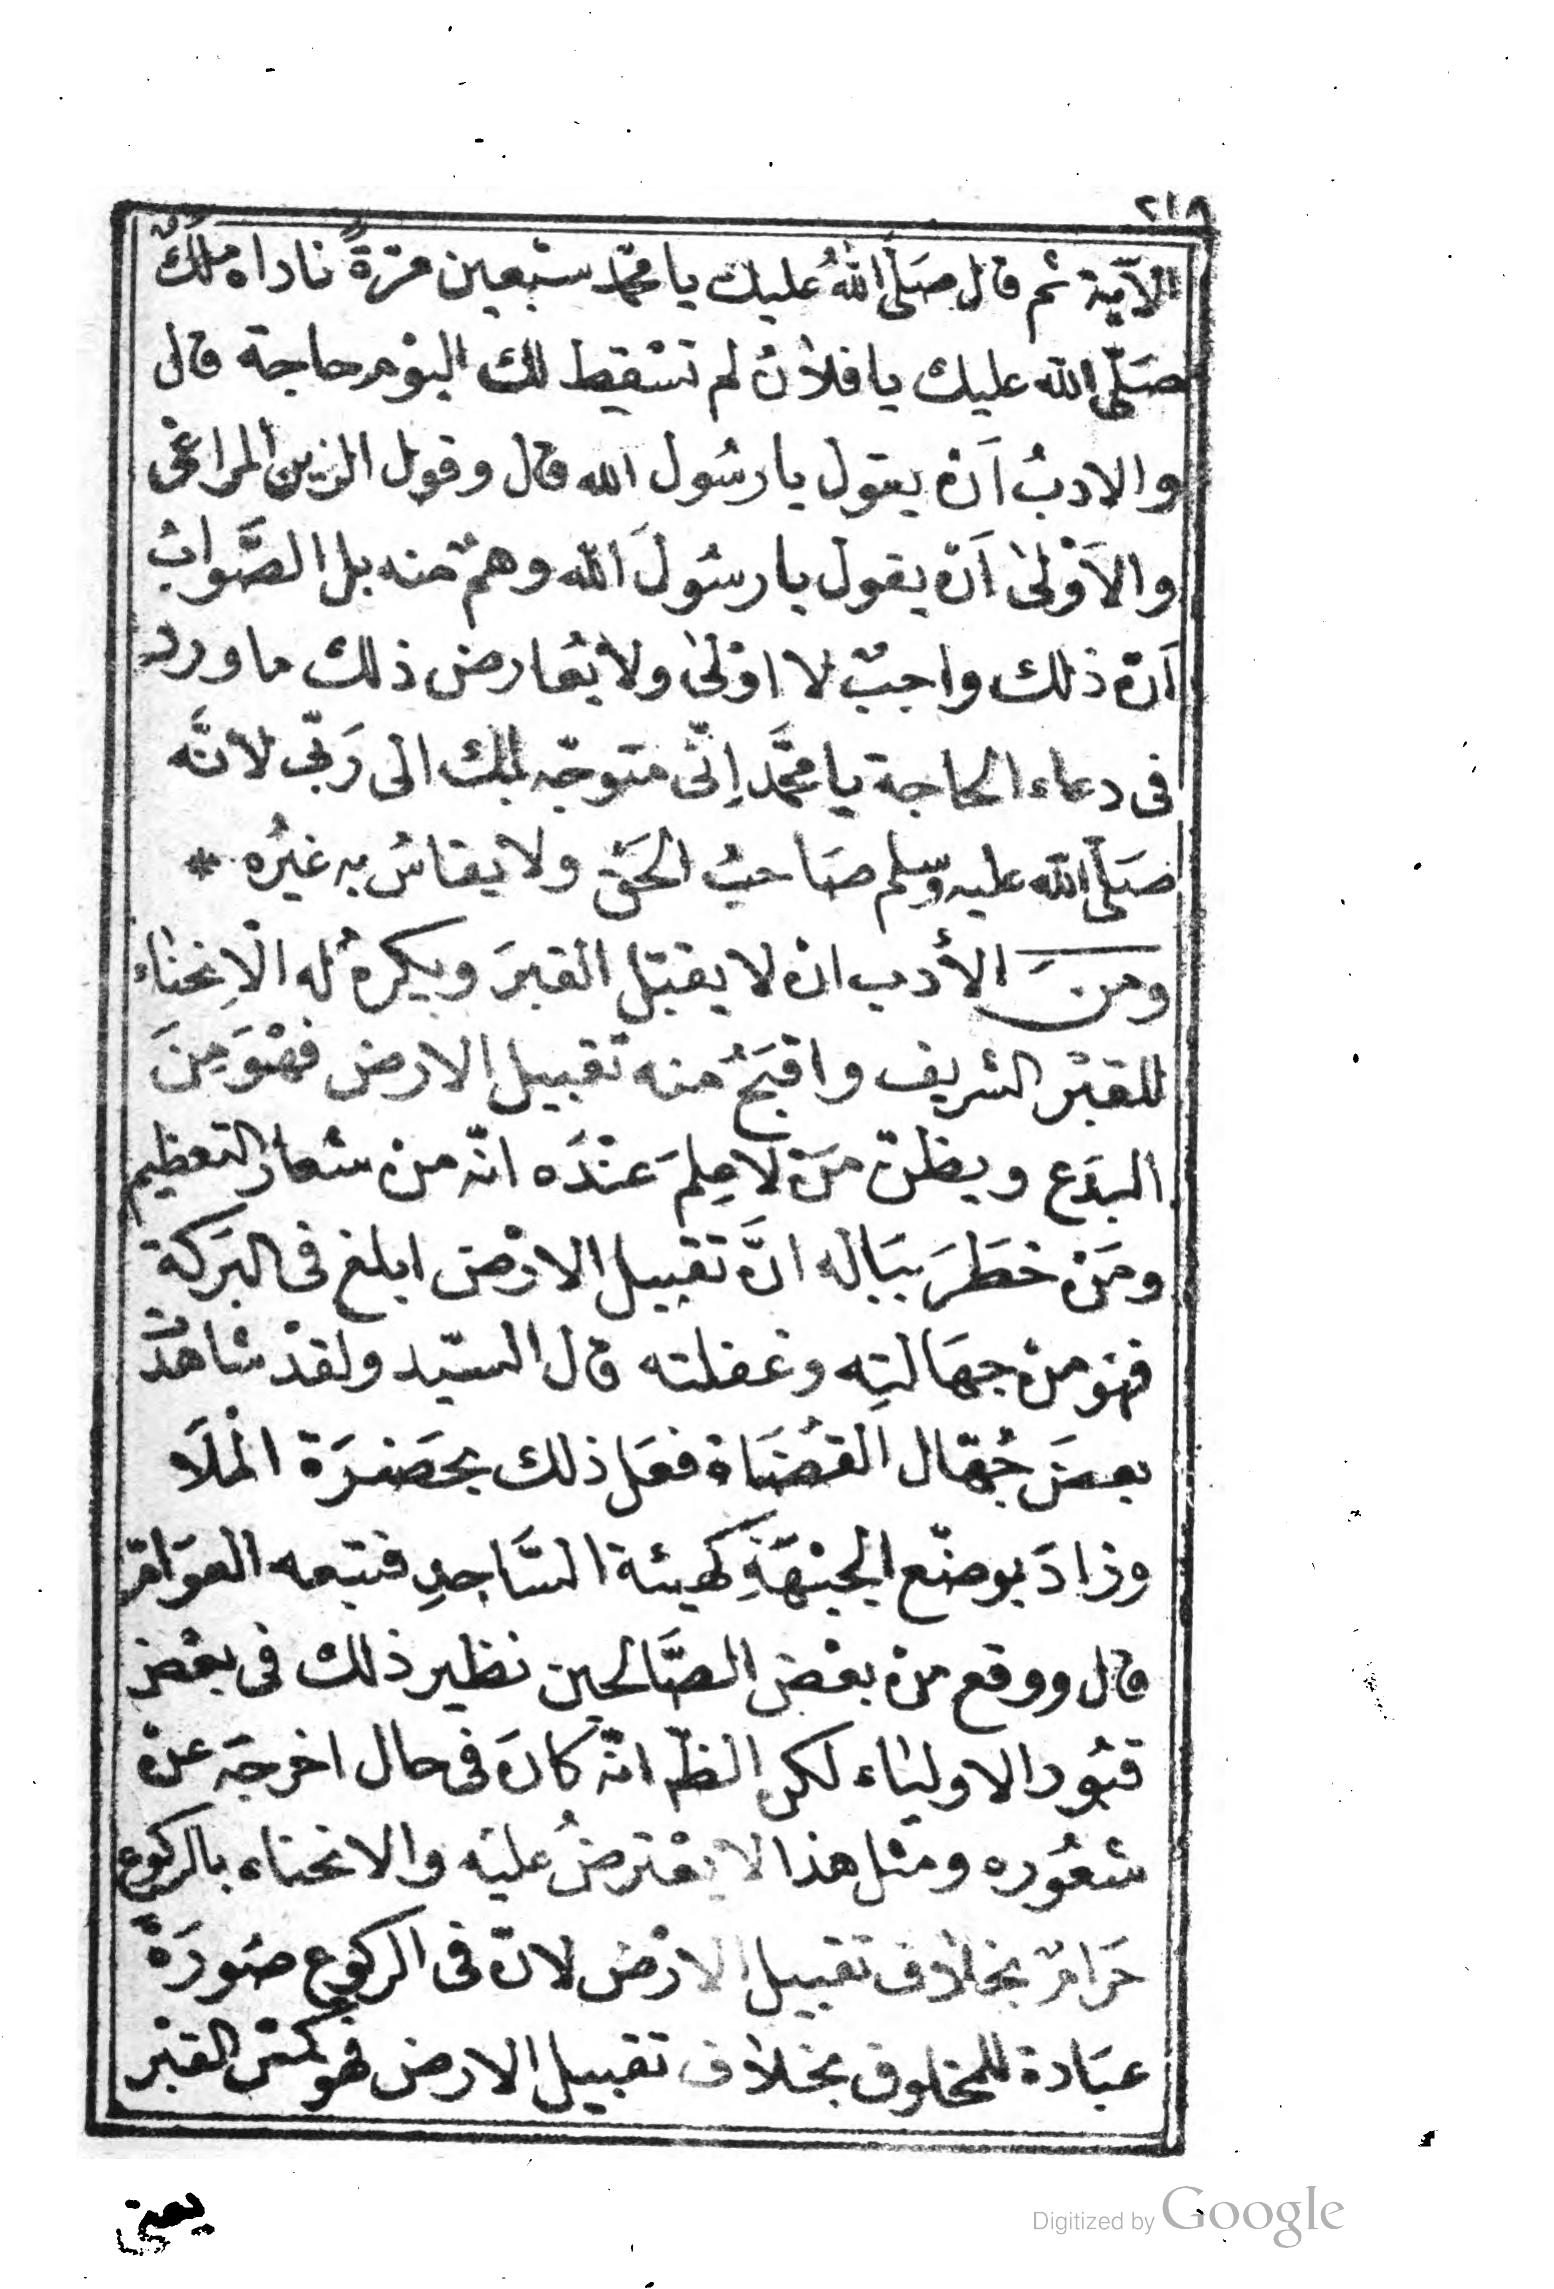 ٢١٩
الآية ثم قال صَلَّى اللهُ عليك يا محمّد سبْعين مرّةً ناداه ملَكٌ
صَلّى الله عليك يا فلاٰنُ لم تسْقط لك اليوْم حاجة قال
والادبُ اَنْ يقول يا رسُول الله قال وقول الزين المراغى
والاَوْلىٰ اَنْ يقول يا رسُولَ الله وهْمٌ منه بل الصَّوابُ
اَنّ ذلك واجبٌ لا اوْلىٰ ولا يُعارض ذلك ما ورد
فى دعاء الحاجة يا محمَّد اِنّى متوجّه بك الى رَبّى لانَّه
صَلّى الله عليه وسلم صَاحبُ الحَق ولا يقاسُ به غيرُه *
ومنَ الأدب ان لا يقبّل القبرَ ويكرهُ له الاِنحناء
للقبْر الشريف واقبَحُ منه تقبيل الارض فهْوَ مِنَ
البدَع ويظنّ مَنْ لا عِلمَ عنْدَه انّه منْ شعار التعظيم
ومَنْ خطَرَ ببَاله انَّ تقبيل الارْض ابلغ فى البَركة
فهو منْ جهَالتِه وغفلته قال السّيد ولقدْ شاهدْتُ
بعضَ جُهّال القُضَاة فعَل ذلك بحَضرَة الْملَا
وزادَ بوضْع الجبْهَةِ كهيئة السَّاجدِ فتبعه العوَامّ
قال ووقع منْ بعْض الصَّالحين نظير ذلك فى بعْض
قبُور الاولياء لكن الظّ انّه كانَ فى حال اخرجَه عنْ
شعُوره ومثل هذا لا يعْترضُ عليْه والانحناء بالركوع
حَرامٌ بخلاف تقبيل الارْض لانّ فى الركوع صُورَةً
عبَادة للمخلوق بخلاف تقبيل الارض فهو كمسّ القبْر
يعنى
Digitized by Google